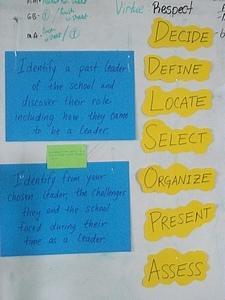 Virtue Respect
DECIDE
DEFINE
LOCATE
SELECT
ORGANIZE
PRESENT
ASSESS
Identify a past leader
of the school and
discover their role
including how they came
to be a leader.
Identify from your
chosen leader, the challenges
they and the school
faced during their
time as a leader.